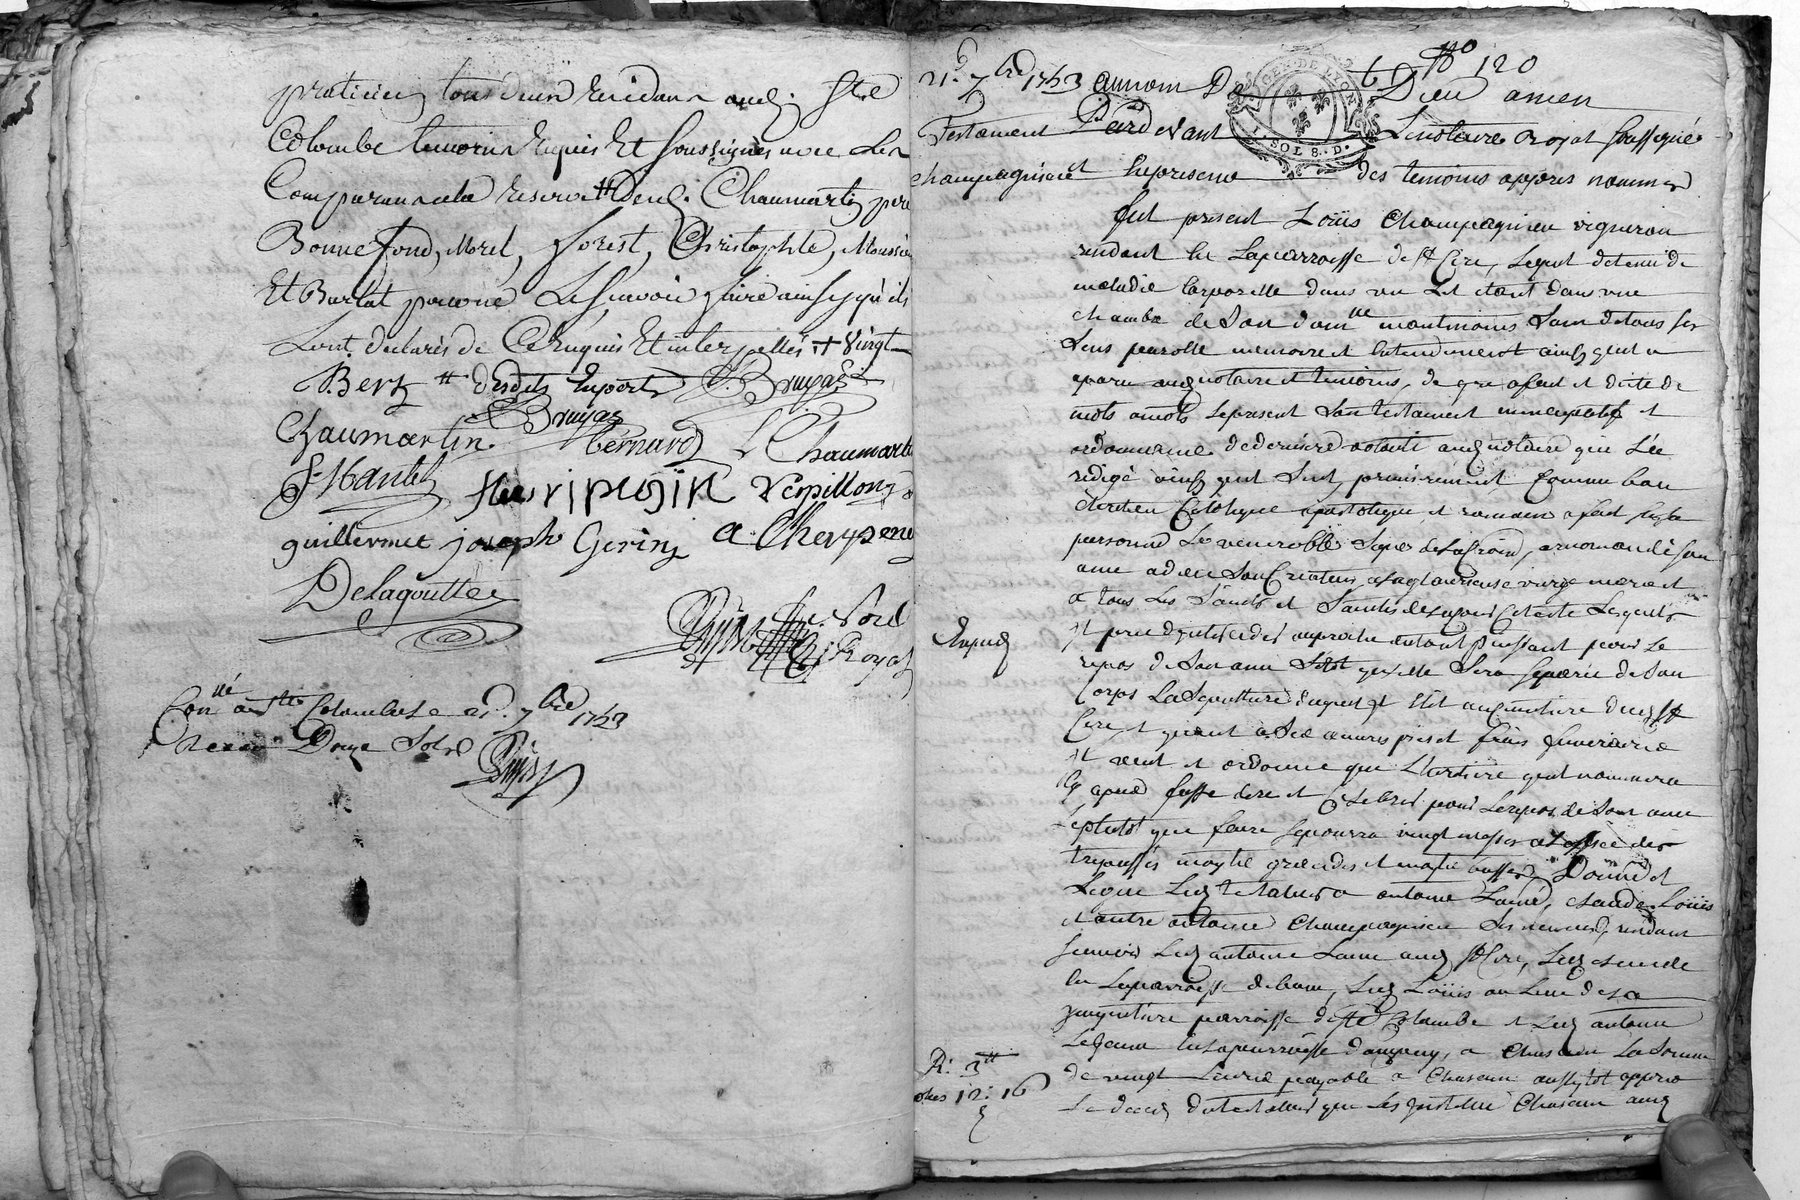 praticien tous deux residans aud. Ste
Colombe temoins requis Et soussignés avec Les
Comparans a la reserve desd. Chaumartin pere
Bonnefond, Morel, forest, Christophle, Moussier
Et Burlat pour ne Le sçavoir faire ainsy qu'ils
L'ont declarés de Ce requis Et interpellés + vingt
Berg desdits Experts Bruyas
Bruyas
Chaumartin Bernard Chaumarti
Hantel Henri pugin Vespillon
guillermet joseph Gerin a Cherpene
Delagoutte
Royal
Con.llé a Ste Colombe Le 21e 7bre 1743
Receu Douze Sols
No 120
21e 7bre 1743 au nom De Dieu amen
Testament Pardevant Le notaire Royal soussigné
champagnieu En presence des temoins apprès nommés
fut present Loüis Champagnieu vigneron
residant en La parroisse de St Cire, Lequel detenu de
maladie Corporelle dans un Lit etant dans une
chambre de Son dom.lle neantmoins Sain de tous ses
Sens parolle memoire et Entendement ainsy qu'il a
aparu aud notaire et temoins, de gré a fait et dicté de
mots a mots Le present Son testament nuncupatif et
ordonnance de derniere volonté aud notaire qui L'a
redigé ainsy que Suit, premierement Comme bon
Chretien Catholique apostolique et romain a fait sur sa
personne Le venerable Signe de la Croix, recomandé son
ame a dieu Son Createur, a La glorieuse vierge mere et
a tous Les Saints et Saintes de La Cour Celeste Lesquels
Il prie d'interceder auprès de autant puissant pour Le
repos de Son ame Sitot qu'elle Sera separée de Son
Corps La Sepulture duquel Il elit au Cimetiere dud St
Cire et quant a Ses œuvres pies et frais funeraires
Il veut et ordonne que L'heritiere qu'il nommera
Cy après fasse dire et Celebrer pour Le repos de Son ame
plutot que faire Se pourra vingt messes a L'office des
trepassés moytié grandes et moytié basses Donne et
Legue Led testateur a antoine L'ainé, claude, Loüis
et autre antoine Champagnieu Ses neveux, residants
sçavoir Led antoine L'ainé aud St Cire, Led claude
en La parroisse de Led Loüis au Lieu de La
parroisse de Ste Colombe et Led antoine
Le Jeune en La parroisse d'ampuy, a Chacun La Somme
de vingt Livres payable a Chacun aussytot apprès
Le decès du testateur que Les Institue Chacun aud
Expedié
R: 3tt
12: 16